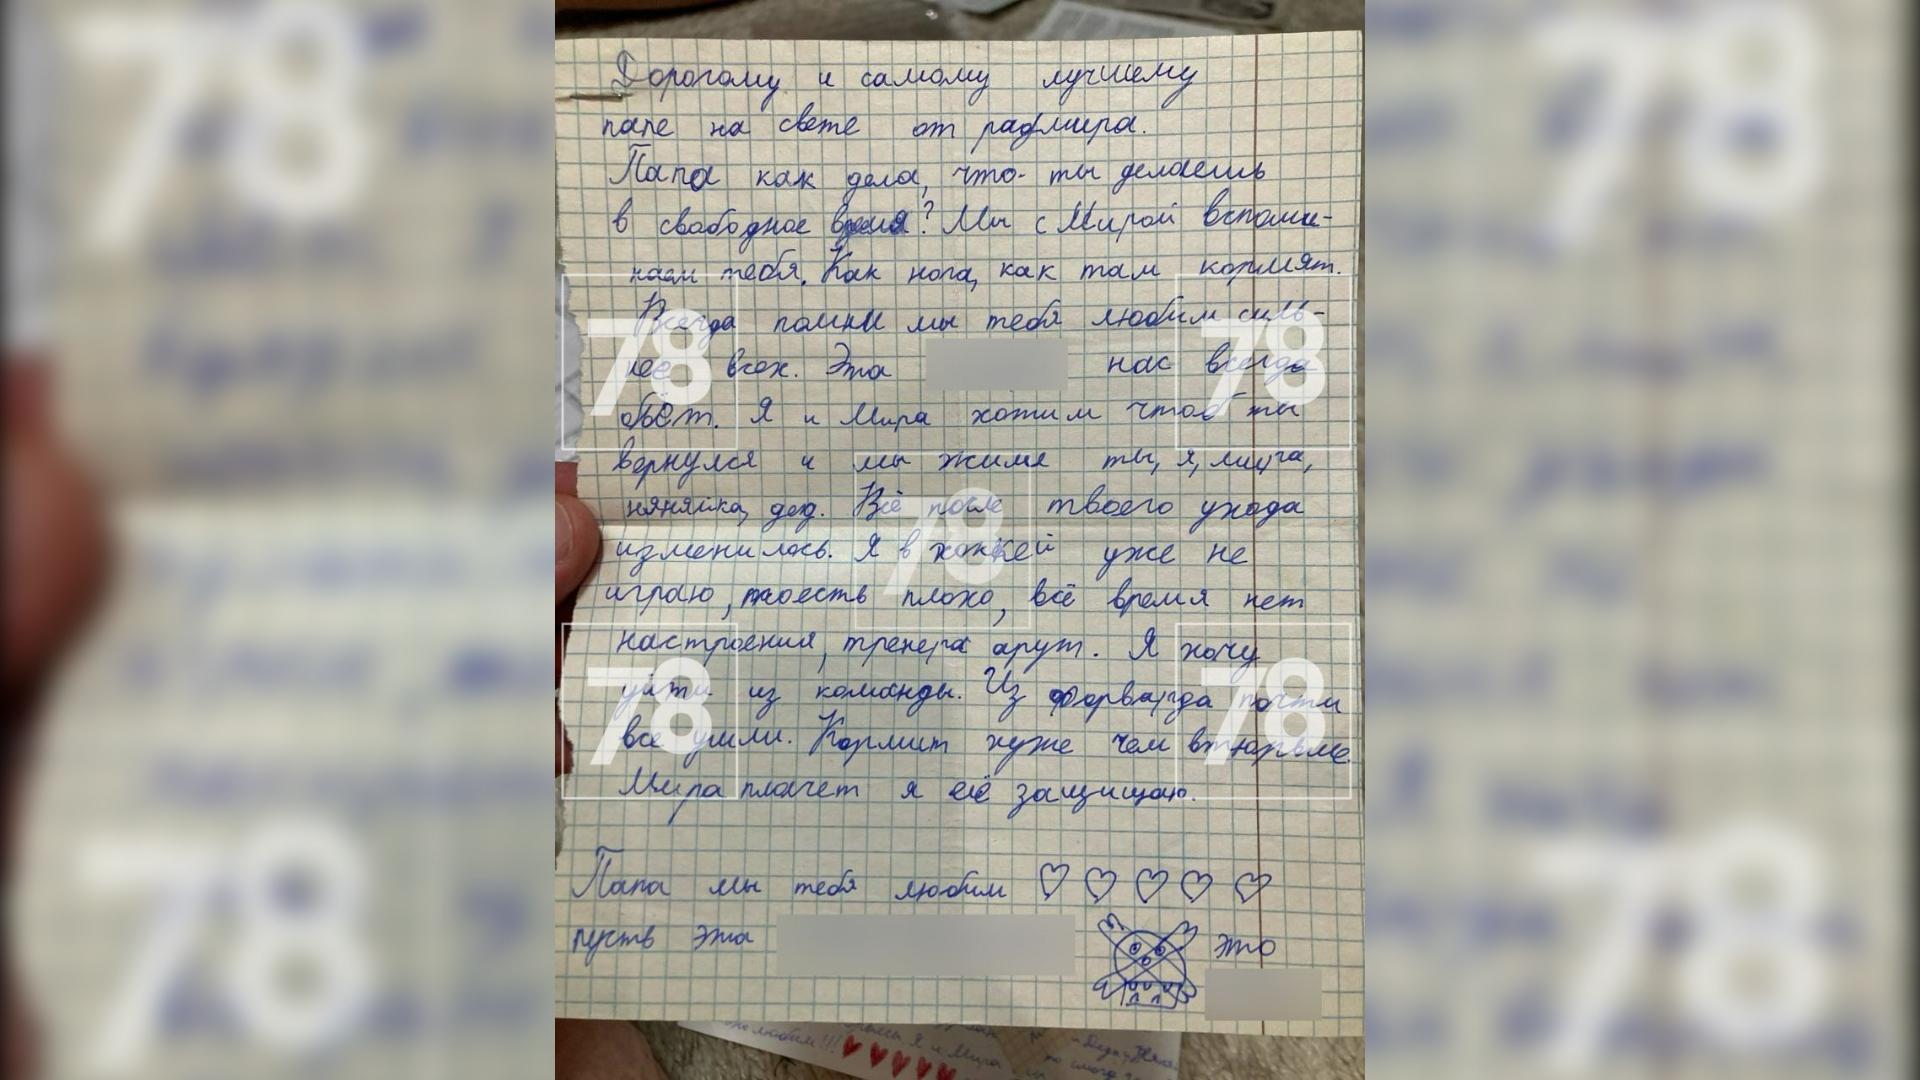 Дорогому и самому лучшему
папе на свете от радмира.
Папа как дела, что- ты делаешь
в свабодное время? Мы с Мирой вспоми-
наем тебя. Как нога, как там кормят.
Всегда помни мы тебя любим силь-
нее всех. Эта нас всегда
обьёт. Я и Мира хотим чтоб ты
вернулся и мы жили ты, я, мира,
няняйка, дед. Всё после твоего ухода
изменилось. Я в хоккей уже не
играю, тоесть плохо, всё время нет
настроения, тренера орут. Я хочу
уйти из команды. Из форварда почти
все ушли. Кормит хуже чем втюрьме.
Мира плачет я её защищаю.
Папа мы тебя люблим ♡ ♡ ♡ ♡ ♡
пусть эта
это
78
78
78
78
78
Я и Мира